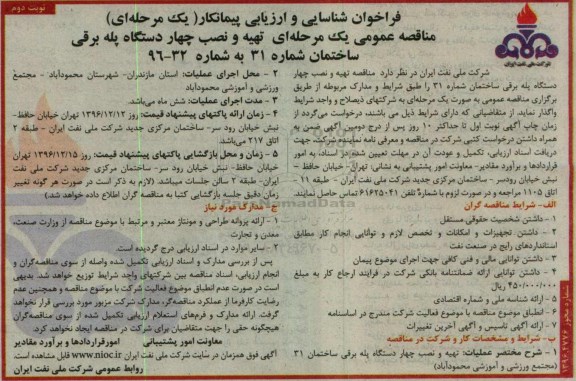 نوبت دوم
فراخوان شناسایی و ارزیابی پیمانکار( یک مرحله‌ای)
مناقصه عمومی یک مرحله‌ای تهیه و نصب چهار دستگاه پله برقی
ساختمان شماره ۳۱ به شماره ۳۲-۹۶
شرکت ملی نفت ایران
شرکت ملی نفت ایران در نظر دارد مناقصه تهیه و نصب چهار
دستگاه پله برقی ساختمان شماره ۳۱ را طبق شرایط و مدارک مربوطه از طریق
برگزاری مناقصه عمومی به صورت یک مرحله‌ای به شرکتهای ذیصلاح و واجد شرایط
واگذار نماید. از متقاضیانی که دارای شرایط ذیل می باشند، درخواست می‌گردد از
زمان چاپ آگهی نوبت اول تا حداکثر ۱۰ روز پس از درج دومین آگهی ضمن به
همراه داشتن درخواست کتبی شرکت در مناقصه و معرفی نامه نماینده شرکت، جهت
دریافت اسناد ارزیابی، تکمیل و عودت آن در مهلت تعیین شده در اسناد، به امور
قراردادها و برآورد مقادیر- معاونت امور پشتیبانی به نشانی: تهران- خیابان حافظ -
نبش خیابان رودسر - ساختمان مرکزی جدید شرکت ملی نفت ایران - طبقه ۱۱ -
اتاق ۱۱۰۵ مراجعه و در صورت لزوم با شماره تلفن ۶۱۶۲۵۰۴۱ تماس حاصل نمایند.
الف- شرایط مناقصه گران
۱ - داشتن شخصیت حقوقی مستقل
۲ - داشتن تجهیزات و امکانات و تخصص لازم و توانایی انجام کار مطابق
استانداردهای رایج در صنعت نفت
۳ - داشتن توانایی مالی و فنی کافی جهت اجرای موضوع پیمان
۴ - داشتن توانایی ارائه ضمانتنامه بانکی شرکت در فرایند ارجاع کار به مبلغ
۴۵۰/۰۰۰/۰۰۰ ریال
۵ - ارائه شناسه ملی و شماره اقتصادی
۶ - انطباق موضوع مناقصه با موضوع فعالیت شرکت مندرج در اساسنامه
۷ - ارائه آگهی تاسیس و آگهی آخرین تغییرات
ب- شرایط و مشخصات کار و شرکت در مناقصه
۱ - شرح مختصر عملیات: تهیه و نصب چهار دستگاه پله برقی ساختمان ۳۱
(مجتمع ورزشی و آموزشی محمودآباد)
۲ - محل اجرای عملیات: استان مازندران- شهرستان محمودآباد - مجتمع
ورزشی و آموزشی محمودآباد
۳ - مدت اجرای عملیات: شش ماه می‌باشد.
۴ - زمان ارائه پاکتهای پیشنهاد قیمت: روز ۱۳۹۶/۱۲/۱۲ تهران خیابان حافظ-
نبش خیابان رود سر- ساختمان مرکزی جدید شرکت ملی نفت ایران - طبقه ۲
اتاق ۲۱۷ می‌باشد.
۵ - زمان و محل بازگشایی پاکتهای پیشنهاد قیمت: روز ۱۳۹۶/۱۲/۱۵ تهران
خیابان حافظ- نبش خیابان رود سر- ساختمان مرکزی جدید شرکت ملی نفت
ایران- طبقه ۲ سالن جلسات میباشد. (لازم به ذکر است در صورت هر گونه تغییر
زمان دقیق جلسه بازگشایی کتبا به مناقصه گران اطلاع داده خواهد شد.)
ج- مدارک مورد نیاز
۱ - ارائه پروانه طراحی و مونتاژ معتبر و مرتبط با موضوع مناقصه از وزارت صنعت،
معدن و تجارت
۲ - سایر موارد در اسناد ارزیابی درج گردیده است.
پس از بررسی مدارک و اسناد ارزیابی تکمیل شده واصله از سوی مناقصه‌گران و
انجام ارزیابی، اسناد مناقصه بین شرکتهای واجد شرایط توزیع خواهد شد. بدیهی
است در صورت عدم انطباق موضوع فعالیت شرکت با موضوع مناقصه و همچنین عدم
رضایت کارفرما از عملکرد مناقصه‌گر، مدارک شرکت مزبور مورد بررسی قرار نخواهد
گرفت. ارائه مدارک و فرم‌های استعلام ارزیابی تکمیل شده از سوی مناقصه‌گران
هیچگونه حقی را جهت متقاضیان برای شرکت در مناقصه ایجاد نخواهد کرد.
معاونت امور پشتیبانی امورقراردادها و برآورد مقادیر
آگهی فوق همزمان در سایت شرکت ملی نفت ایران www.nioc.ir قابل مشاهده است.
روابط عمومی شرکت ملی نفت ایران